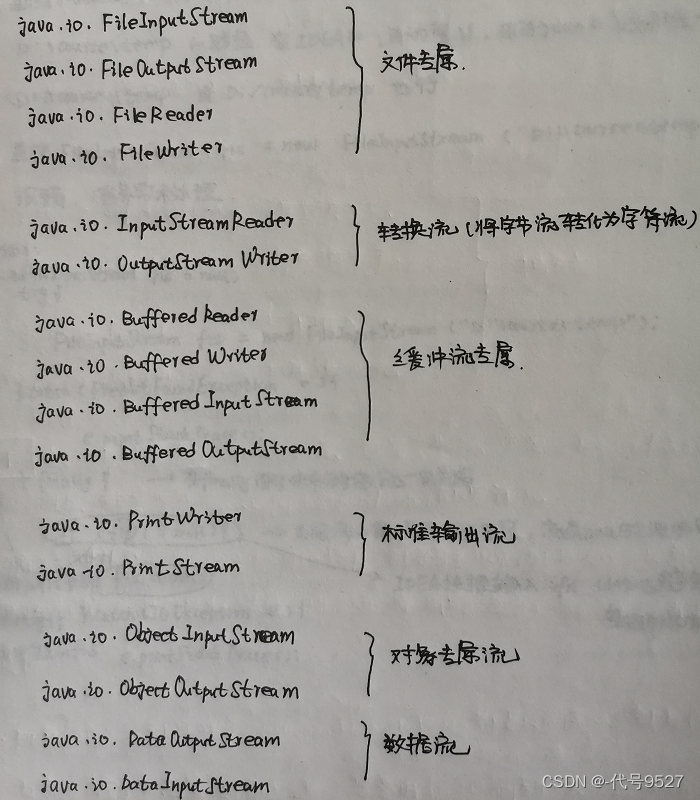 java.io. FileInputStream
java.io. FileOutputStream
文件专属.
java.io. FileReader
java.io. FileWriter
java.io. InputStreamReader
转换流(将字节流转化为字符流)
java.io. OutputStream Writer
java.io. Buffered Reader
java.io. Buffered Writer
缓冲流专属.
java.io. Buffered InputStream
java.io. Buffered OutputStream
java.io. PrintWriter
标准输出流
java.io. PrintStream
java.io. Object InputStream
对象专属流
java.io. Object OutputStream
java.io. Data OutputStream
数据流
java.io. DataInputStream
CSDN @-代号9527